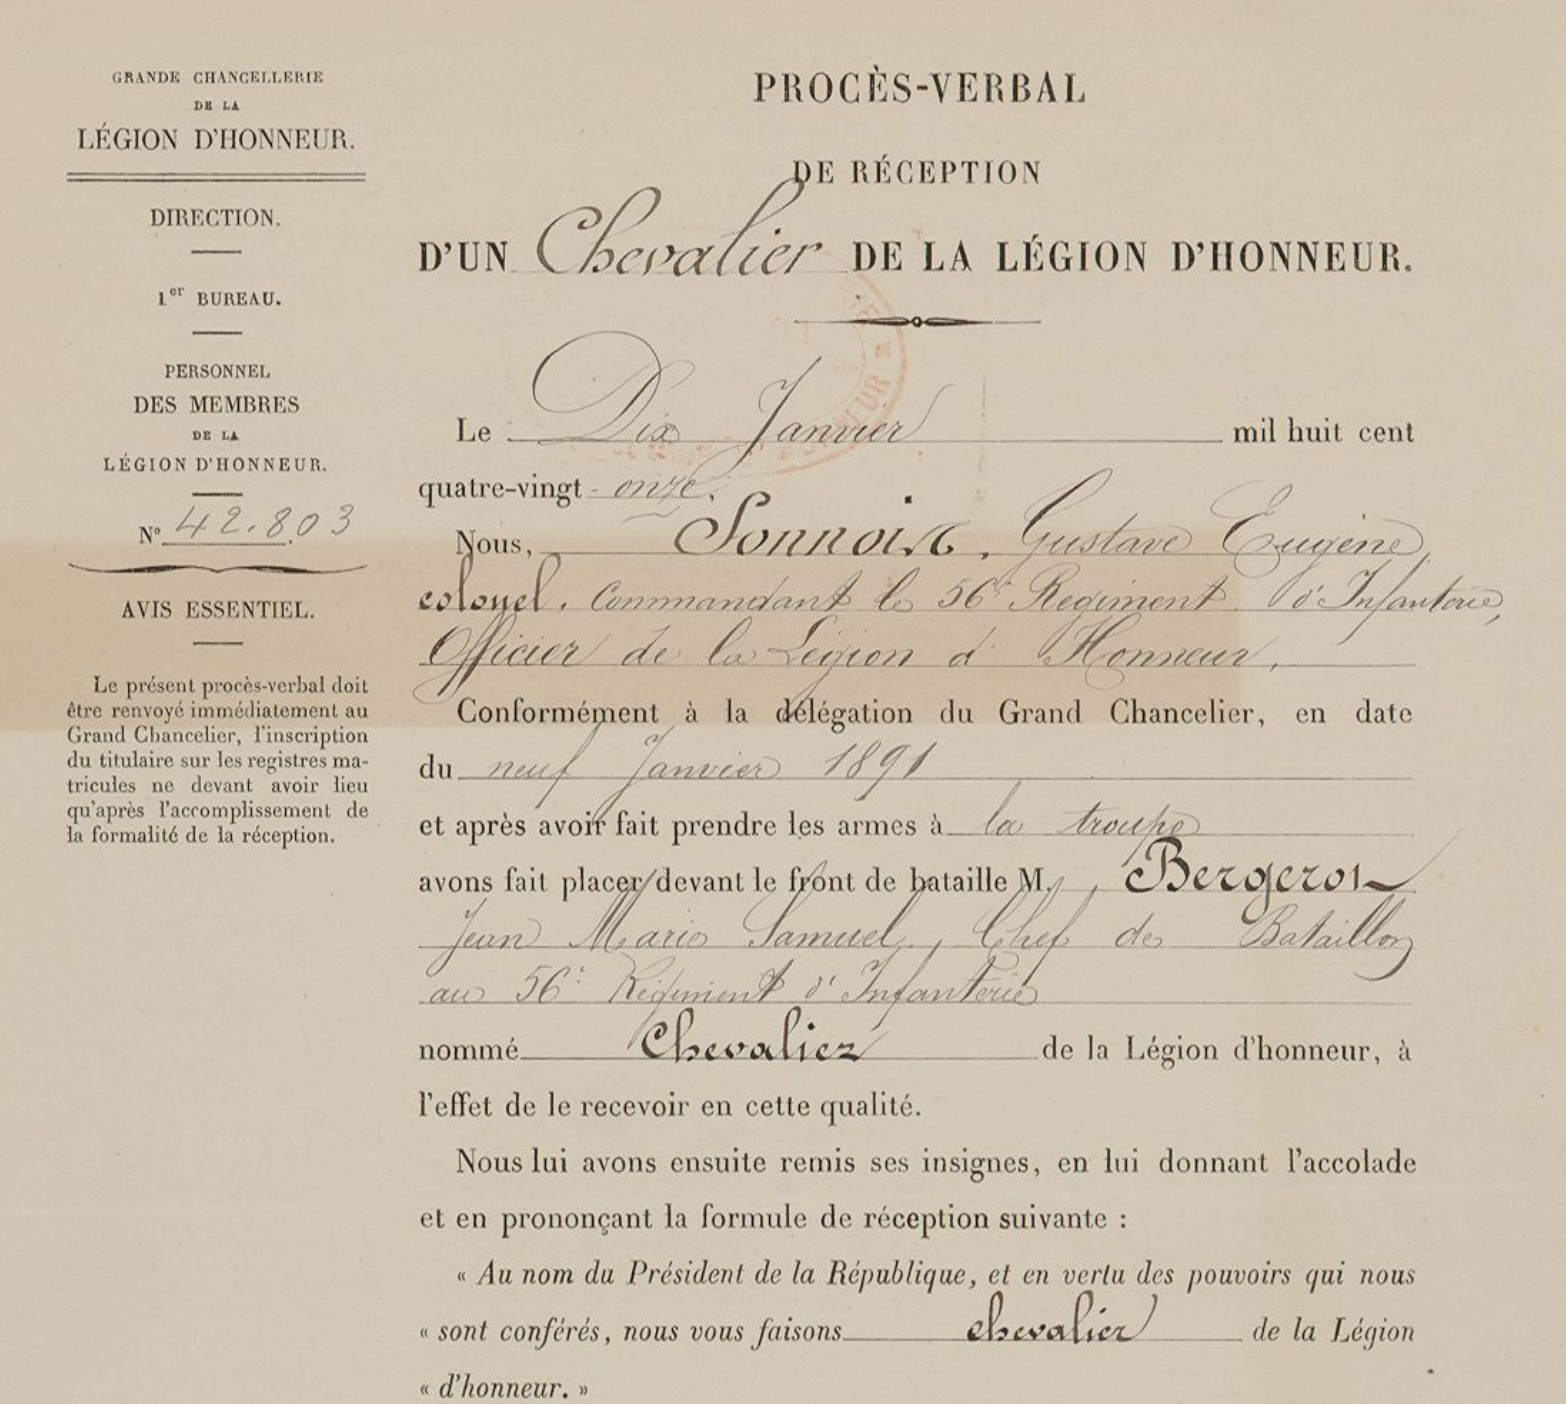 GRANDE CHANCELLERIE
DE LA
LÉGION D'HONNEUR.
DIRECTION.
1er BUREAU.
PERSONNEL
DES MEMBRES
DE LA
LÉGION D'HONNEUR.
N° 42.803
AVIS ESSENTIEL.
Le présent procès-verbal doit
être renvoyé immédiatement au
Grand Chancelier, l'inscription
du titulaire sur les registres ma-
tricules ne devant avoir lieu
qu'après l'accomplissement de
la formalité de la réception.
PROCÈS-VERBAL
DE RÉCEPTION
D'UN Chevalier DE LA LÉGION D'HONNEUR.
Le Dix Janvier mil huit cent
quatre-vingt-onze.
Nous, Sonnois, Gustave Eugène,
colonel, Commandant le 56e Régiment d'Infanterie,
Officier de la Légion d'Honneur,
Conformément à la délégation du Grand Chancelier, en date
du neuf Janvier 1891
et après avoir fait prendre les armes à la troupe
avons fait placer devant le front de bataille M. Bergeron
Jean Marie Samuel, Chef de Bataillon
au 56e Régiment d'Infanterie
nommé Chevalier de la Légion d'honneur, à
l'effet de le recevoir en cette qualité.
Nous lui avons ensuite remis ses insignes, en lui donnant l'accolade
et en prononçant la formule de réception suivante :
« Au nom du Président de la République, et en vertu des pouvoirs qui nous
« sont conférés, nous vous faisons chevalier de la Légion
« d'honneur. »